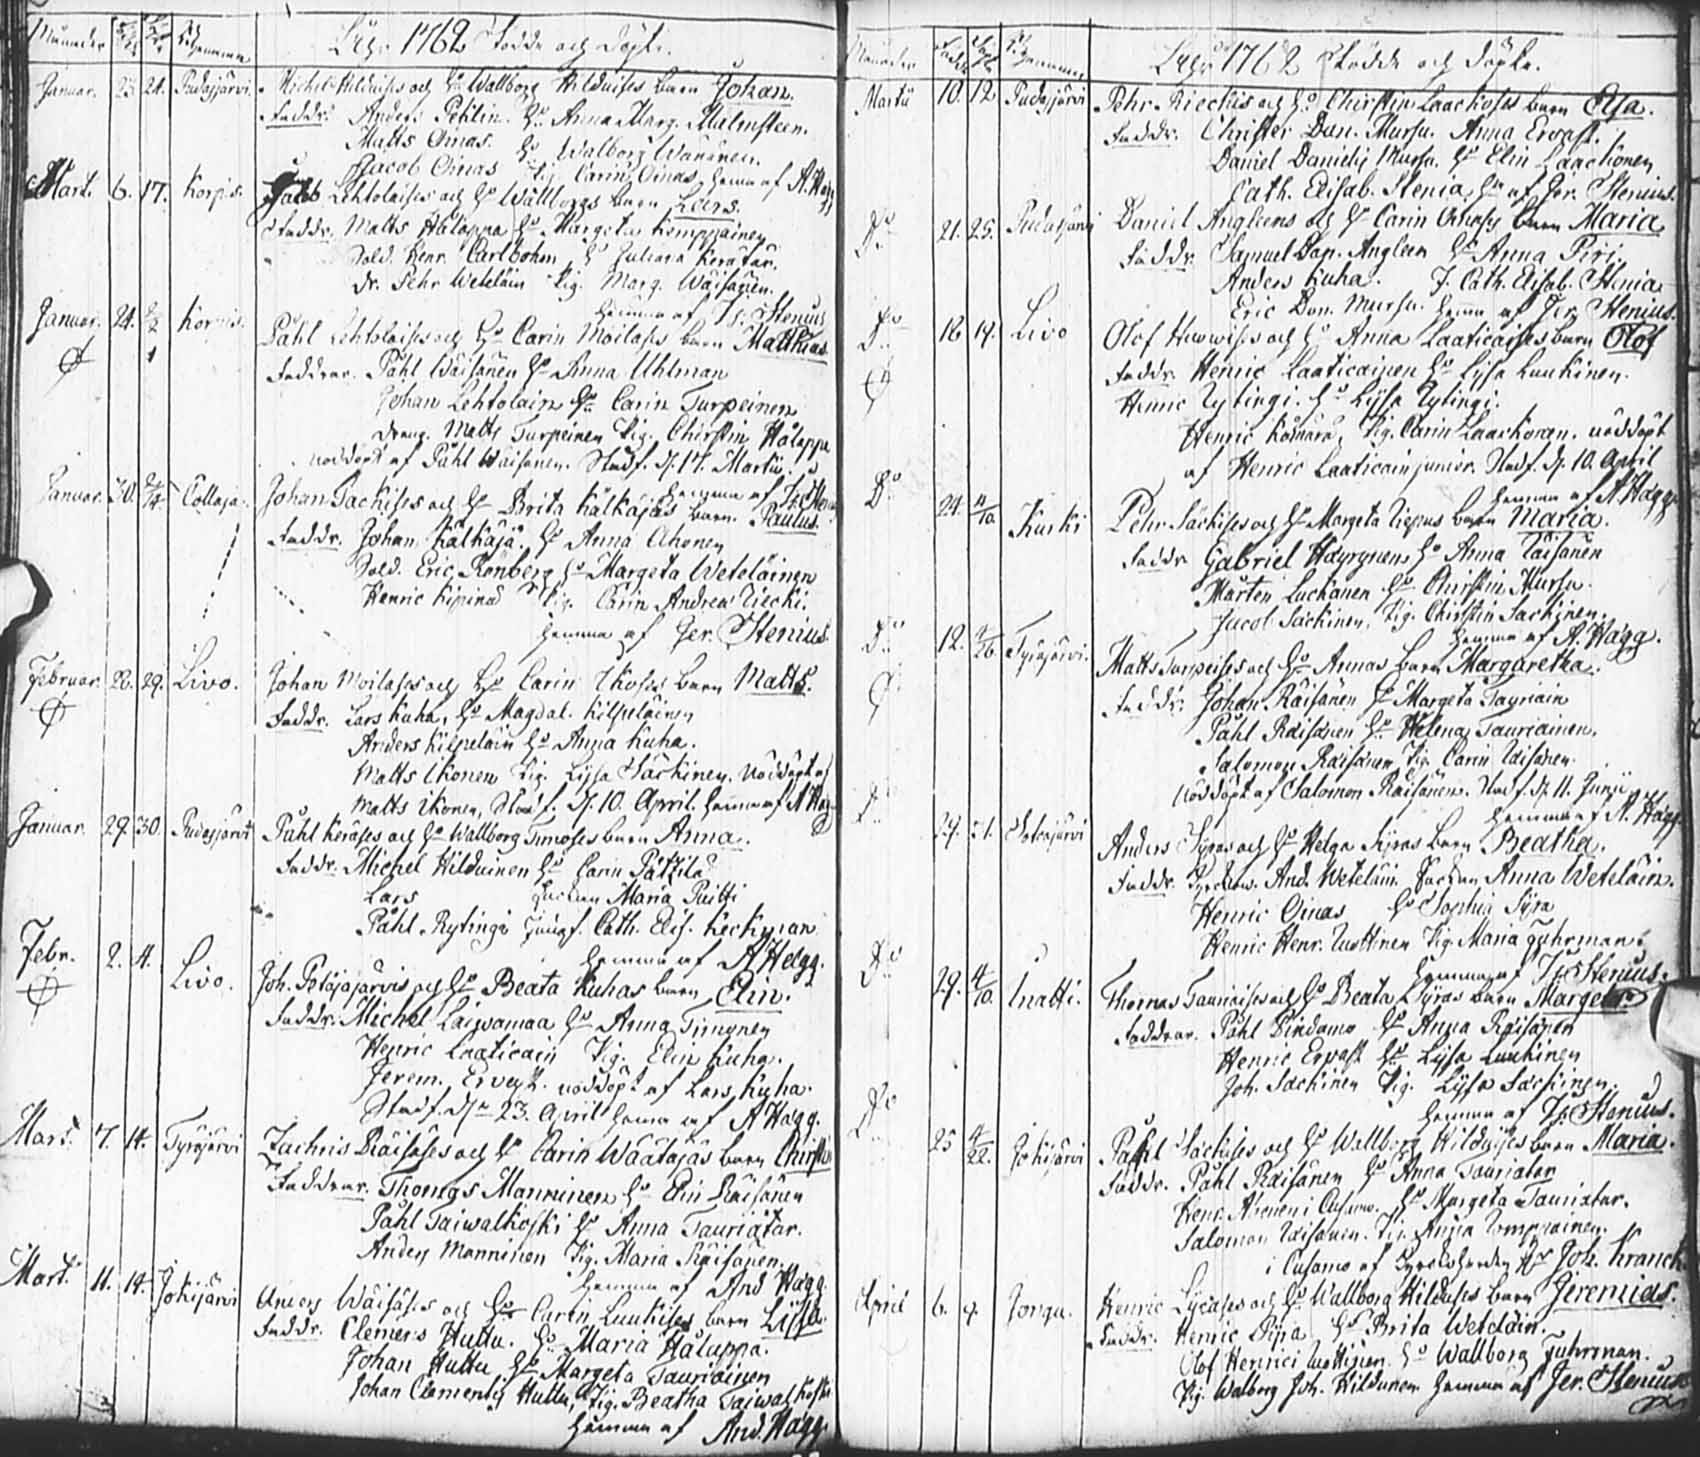 Månader
1762 Födde och Döpte.
Januar. 23. 24. Pudasjärvi. Michel Hilduises och Hu Wallborg Hilduises barn Johan.
Faddr. Anders Pehlin. Hu Anna Marg. Malmsteen.
Matts Oinas. Hu Walborg Wänänen.
Jacob Oinas Pig. Carin Oinas, hemma af A. Hägg
Mart. 6. 17. Korpis. Jacob Lehtolaises och Hu Wallborgs barn Lars.
Faddr. Matts Hålappa Hu Margeta Kemppainen
Sold. Henr. Carlbohm Hu Juliana Keratar.
Dr. Pehr Weteläin Pig. Marg. Wäisänen.
hemma af J. Stenius
Januar. 24. Korpis. Påhl Lehtolaises och Hu Carin Moilases barn Matthias
Faddrar. Påhl Wäisänen Hu Anna Uhlman
Johan Lehtolain Hu Carin Turpeinen
dreng. Matts Turpeinen Pig. Chirstin Hålappa
nöddöpt af Påhl Wäisänen. Stadf. d. 17. Martii.
hemma af J. Stenius
Januar. 30. Collaja. Johan Sackises och Hu Brita Kälkäjäs barn Paulus.
Faddr. Johan Kälkäjä Hu Anna Ahonen
Sold. Eric Rönberg Hu Margeta Weteläinen
Henric Kipinä Pig. Carin Andreæ Riecki.
hemma af Jer. Stenius.
Februar. 22. 29. Livo. Johan Moilases och Hu Carin Ikoses barn Matts.
Faddr. Lars Kuha, Hu Magdal. Kilpeläinen
Anders Kilpeläin Hu Anna Kuha.
Matts Ikonen Pig. Lijsa Särkinen. Nöddöpt af
Matts Ikonen, Stadf. d. 10. April. hemma af A Hägg
Januar. 29. 30. Pudasjärvi Påhl Keräses och Hu Wallborg Timoses barn Anna.
Faddr. Michel Hilduinen Hu Carin Pätzilä
Lars Maria Puitti
Påhl Rytinga Jungf. Cath. Elis. Heckman
hemma af A Hägg.
Febr. 2. 4. Livo. Joh. Petäjäjärvis och Hu Beata Kuhas barn Elin.
Faddr. Michel Laiwamaa Hu Anna Timonen
Henric Laaticain Pig. Elin Kuha.
Jerem. Ervast. nöddöpt af Lars Kuha.
Stadf. d. 23. April hemma af A Hägg.
Mart. 7. 14. Tyräjärvi Zachris Räisäses och Hu Carin Wäätäjäs barn Chirstin
Faddrar. Thomas Manninen Hu Elin Räisänen
Påhl Taiwalkoski Hu Anna Tauriatar.
Anders Manninen Pig. Maria Räisänen.
hemma af And Hägg.
Mart. 11. 14. Jokijärvi Anders Wäisäses och Hu Carin Luukises barn Lijsa.
Faddr. Clemens Huttu. Hu Maria Håluppa.
Johan Huttu Hu Margeta Tauriainen
Johan Clementis Huttu, Pig. Beatha Taiwalkoski
hemma af And. Hägg.
Månader
1762 Födde och Döpte.
Martii 10. 12 Pudasjärvi Pehr Rieckis och Hu Chirstin Laackoses barn
Faddr. Christer Dan. Mursu. Anna Ervast.
Daniel Danielis Mursu. Hu Elin Laackonen
Cath. Elisab. Stenia, hemma af Jer. Stenius.
Do 21. 25. Pudasjärvi Daniel Angleens och Hu Carin Oinases barn Maria
Faddr. Samuel Dan. Angleen Hu Anna Piri.
Anders Kuha. J. Cath. Elisab. Stenia
Eric Dan. Mursu. hemma af Jer. Stenius.
Do 16 19. Livo Olof Huowises och Hu Anna Laaticaises barn Olof
Faddr. Henric Laaticainen Hu Lijsa Luukinen.
Henric Rytingi. Hu Lijsa Rytingi.
Henric Kämärä. Pig. Carin Laackonen. nöddöpt
af Henric Laaticain junior. Stadf. d. 10. April
hemma af A Hägg
Do 24. 4/10 Kurki Pehr Säckises och Hu Margeta Riepus barn Maria.
Faddr. Gabriel Häyrynen Hu Anna Räisänen
Mårten Luckanen Hu Chirstin Mursu.
Jacob Säckinen, Pig. Chirstin Säckinen.
hemma af A. Hägg.
Do 12. 4/26. Tyräjärvi. Matts Turpeises och Hu Annas barn Margaretha.
Faddr. Johan Räisänen Hu Margeta Tauriain
Påhl Räisänen Hu Helena Tauriainen.
Salomon Räisänen Pig. Carin Räisänen.
nöddöpt af Salomon Räisänen. Stadf. d. 11. Junii
hemma af A. Hägg
Do 29. 31. Anders Syräs och Hu Helga Sijras barn Beatha.
Faddr. And. Weteläin. Anna Weteläin.
Henric Oinas Hu Sophia Sijra
Henric Henr. Luottinen Pig. Maria Fuhrman.
hemma af J. Stenius.
Do 29. 4/10. Inatti. Thomas Taunaises och Hu Beata Syräs barn Margeta
Faddrar. Påhl Pindamo Hu Anna Räisänen
Henric Ervast Hu Lijsa Luukinen
Joh. Säckinen Pig. Lijsa Säckinen.
hemma af J. Stenius.
Do 25 4/22. Jokijärvi Påhl Säckises och Hu Wallborg Hilduises barn Maria.
Faddr. Påhl Räisänen Hu Anna Tauriatar
Henr. Ahonen i Cusamo. Hu Margeta Tauriatar.
Salomon Räisänen. Pig. Anna Kemppainen.
i Cusamo af Kyrckoherden Hr Joh. Kranck.
April 6. 9. Jongu. Henric Lijcäses och Hu Wallborg Hilduses barn Jeremias.
Faddr. Henric Pijra Hu Brita Weteläin.
Olof Henrici Luottinen. Hu Wallborg Fuhrman.
Pig. Walborg Joh. Hildunen hemma af Jer. Stenius